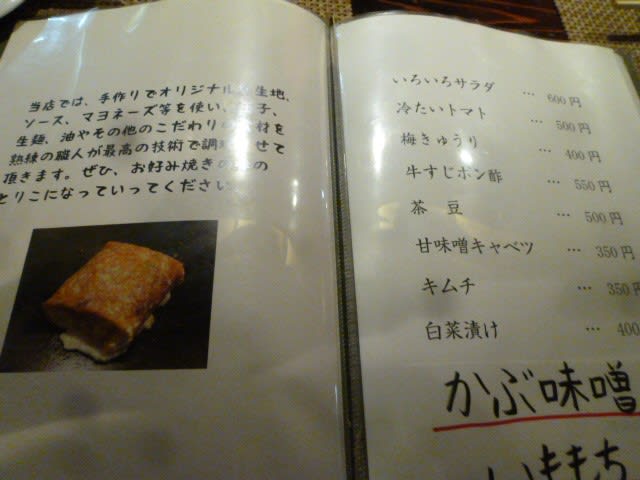 当店では、手作りでオリジナル 生地、
ソース、マヨネーズ等を使い、 子、
生麺、油やその他のこだわり 材を
熟練の職人が最高の技術で調 せて
頂きます。ぜひ、お好み焼き の
とりこになっていってください
いろいろサラダ … 600円
冷たいトマト … 500円
梅きゅうり … 400円
牛すじポン酢 … 550円
茶豆 … 500円
甘味噌キャベツ … 350円
キムチ … 350円
白菜漬け … 400
かぶ味噌
いももち